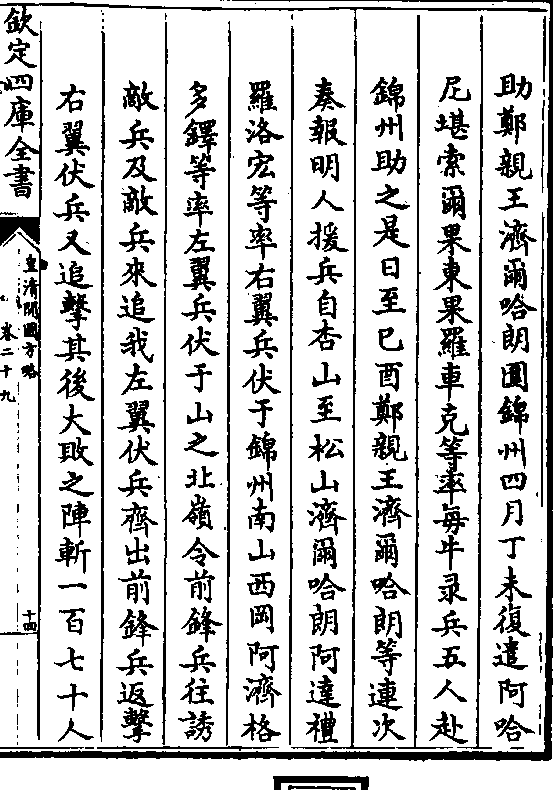 助鄭親王濟爾哈朗圍錦州四月丁未復遣阿哈
尼堪索爾果東果羅車克等率每牛录兵五人赴
錦州助之是日至己酉鄭親王濟爾哈朗等連次
奏報明人援兵自杏山至松山濟爾哈朗阿達禮
羅洛宏等率右翼兵伏于錦州南山西岡阿濟格
多鐸等率左翼兵伏于山之北嶺令前鋒兵往誘
敵兵及敵兵來追我左翼伏兵齊出前鋒兵返擊
右翼伏兵又追擊其後大敗之陣斬一百七十人
欽定四庫全書
皇清開國方略
卷二十九
十四